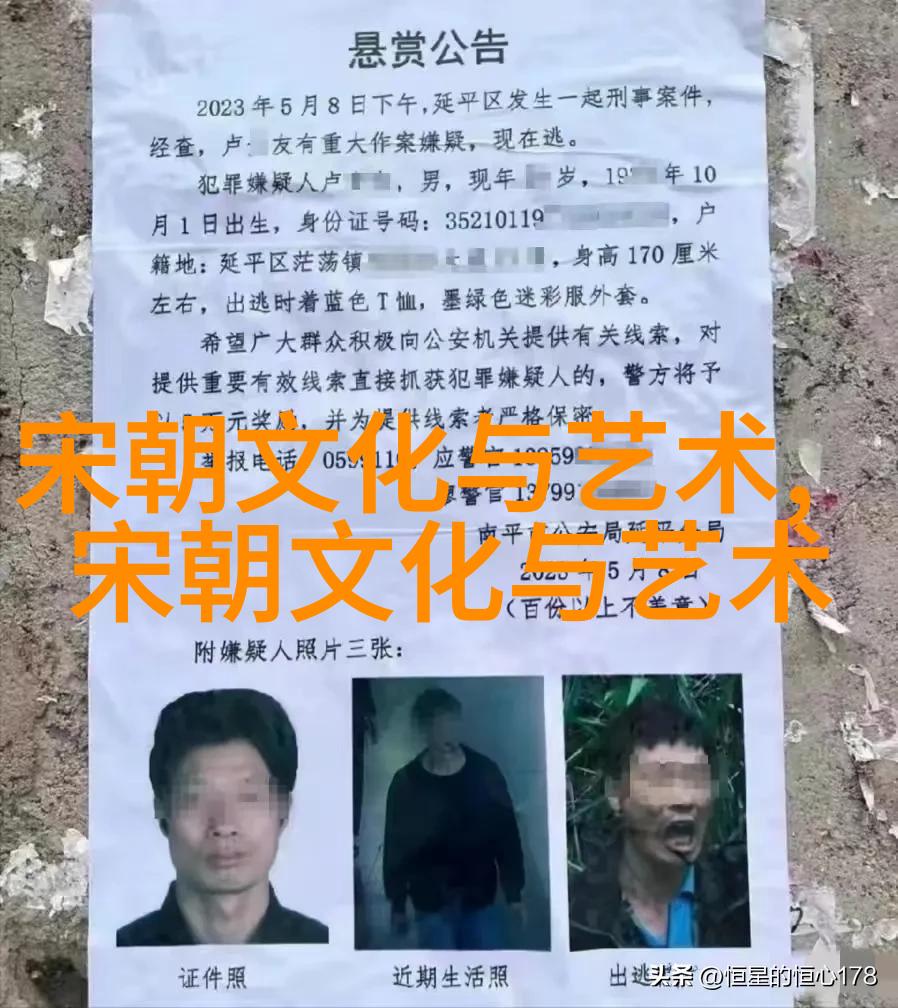 悬赏公告
2023年5月8日下午,延平区发生一起刑事案件,
经查,卢 友有重大作案嫌疑,现在逃。
犯罪嫌疑人卢 ,男,现年 岁,19 年10
月1日出生,身份证号码:35210119 ,户
籍地:延平区茫荡镇 ,身高170厘米
左右,出逃时着蓝色T恤,墨绿色迷彩服外套。
希望广大群众积极向公安机关提供有关线索,对
提供重要有效线索直接抓获犯罪嫌疑人的,警方将予
万元奖励,并为提供线索者严格保密
宋朝文化与艺术,
举报电话 应警官
警官
宋朝文化与艺术
南平 公安局延平 局
2023年5月8日
(百份以上不盖章)
附嫌疑人照片三张:
证件照
近期生活照
出逃
头条 @恒星的恒心178